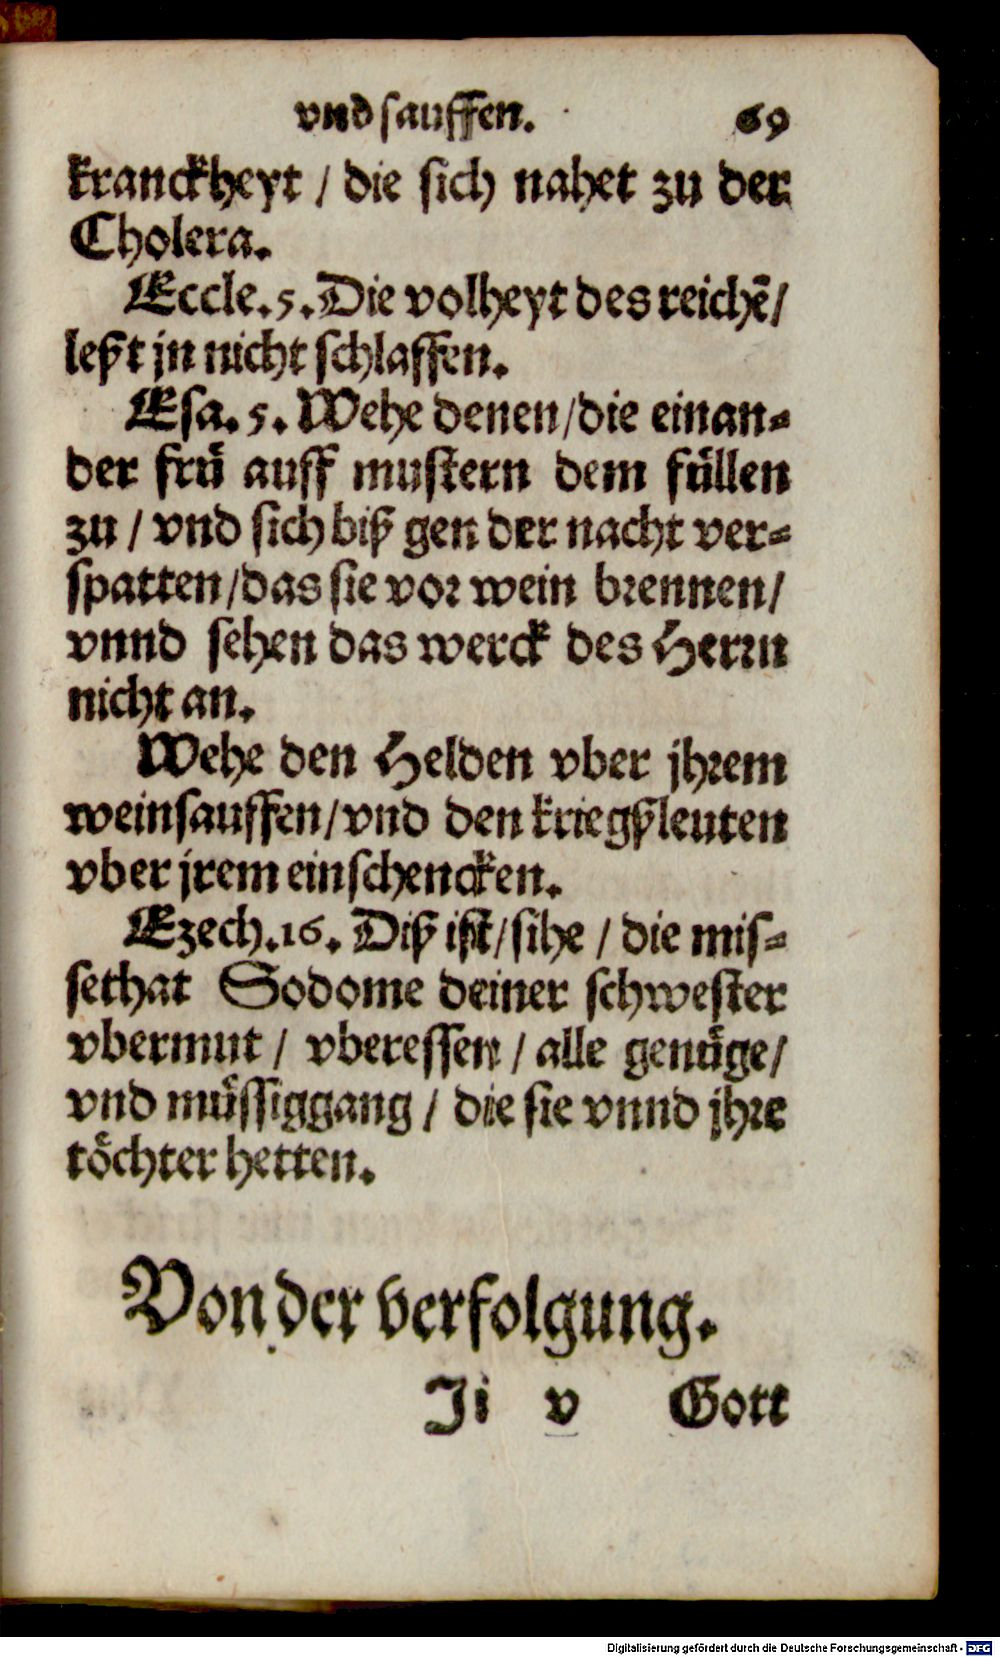 vnd sauffen. 69
kranckheyt / die sich nahet zu der
Cholera.
Eccle. 5. Die volheyt des reichē /
leßt jn nicht schlaffen.
Esa. 5. Wehe denen / die einan=
der frů auff mustern dem fůllen
zu / vnd sich biß gen der nacht ver=
spatten / das sie vor wein brennen /
vnnd sehen das werck des Herrn
nicht an.
Wehe den Helden vber jhrem
weinsauffen / vnd den kriegßleuten
vber jrem einschencken.
Ezech. 16. Diß ist / sihe / die mis=
sethat Sodome deiner schwester
vbermut / vberessen / alle genůge /
vnd můssiggang / die sie vnnd jhre
tôchter hetten.
Von der verfolgung.
Ji v Gott
Digitalisierung gefördert durch die Deutsche Forschungsgemeinschaft - DFG